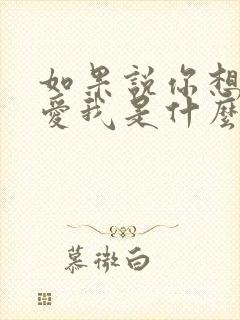 如果說你想
愛我是什麼
慕微白